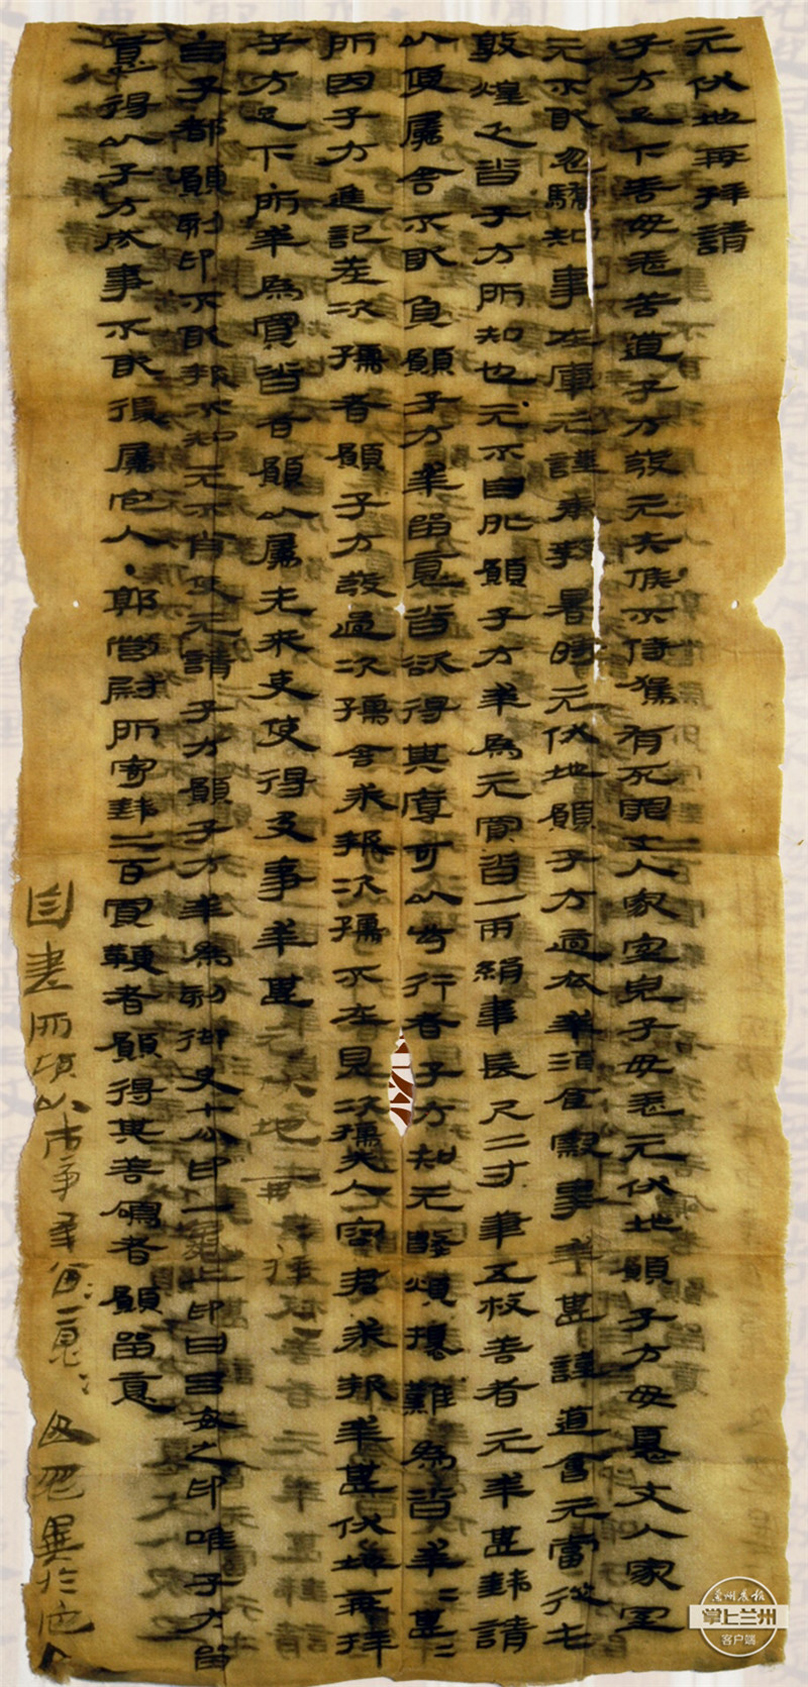 元伏地再拜請
子方足下善毋恙苦道子方發元失候不侍駕有死罪丈人家室兒子毋恙元伏地願子方毋憂丈人家室
元不敢忽驕知事在庫元謹奉教暑時元伏地願子方適衣幸酒食察事幸甚謹道會元當從屯
敦煌乏沓子方所知也元不自外願子方幸為元買沓一兩絹韋長尺二寸筆五枚善者元幸甚錢請
以便屬舍不敢負願子方幸留意沓欲得其厚可以步行者子方知元數煩擾難為沓幸=甚=
所因子方進記差次孺者願子方發過次孺舍求報次孺不在見次孺夫人容君求報幸甚伏地再拜
子方足下·所幸為買沓者願以屬先來吏使得及事幸甚元伏地再拜
吕子都願刻印不敢報不知元不肖使元請子方願子方幸為刻御史七分印一龜上印曰吕安之印唯子方留
意得以子方成事不敢復屬它人·郭營尉所寄錢二百買鞭者願得其善鳴者願留意
自書所願以市事幸留=意=毋忽異於它人
兰州晨报
掌上兰州
客户端